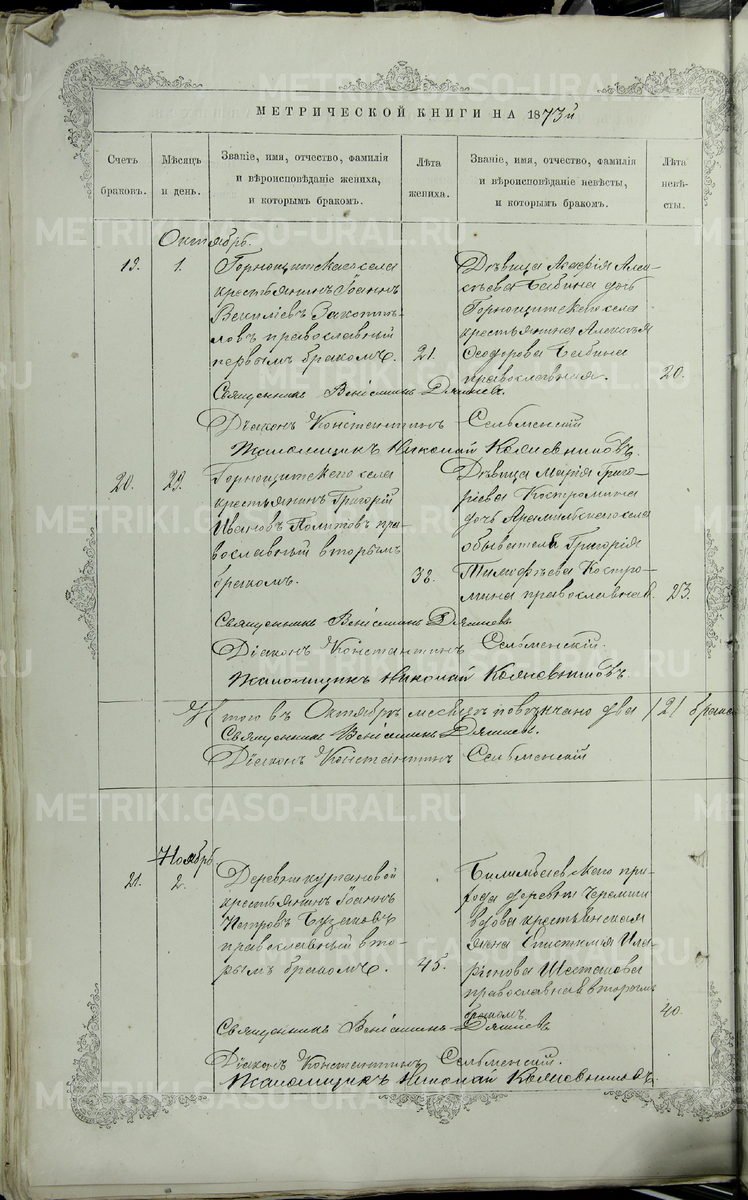 METRIKI.GASO-URAL.RU
МЕТРИЧЕСКОЙ КНИГИ НА 1873й
Счетъ браковъ.
Мѣсяцъ и день.
Званіе, имя, отчество, фамилія
и вѣроисповѣданіе жениха,
и которымъ бракомъ.
Лѣта жениха.
Званіе, имя, отчество, фамилія
и вѣроисповѣданіе невѣсты,
и которымъ бракомъ.
Лѣта невѣсты.
Октябрь.
19. 1.
Горнощитскаго села
крестьянинъ Іоаннъ
Василіевъ
православный
первымъ бракомъ. 21.
Дѣвица Агафія Алек-
сѣева Бабина дочь
Горнощитскаго села
крестьянина Алексѣя
Ѳеодорова Бабина
православная. 20.
Священникъ Веніаминъ
Діаконъ Константинъ Сельменскій
Николай
20. 29.
Горнощитскаго села
крестьянинъ Григорій
Ивановъ Политовъ пра-
вославный вторымъ
бракомъ. 38.
Дѣвица Марія Григо-
ріева Костромина
дочь Арамильскаго села
обывателя Григорія
Тимофѣева Костро-
мина православная. 23.
Священникъ Веніаминъ
Діаконъ Константинъ Сельменскій.
Николай
Итого въ Октябрѣ месяцѣ повѣнчано два /2/ брака
Священникъ Веніаминъ
Діаконъ Константинъ Сельменскій
Ноябрь
21. 2.
Деревни Кургановой
крестьянинъ Іоаннъ
Петровъ
православный вто-
рымъ бракомъ. 45.
Билимбаевскаго при-
хода деревни
вдова крестьянская
жена Епистимія Ила-
ріонова Шестакова
православная вторымъ
бракомъ 40.
Священникъ Веніаминъ
Діаконъ Константинъ Сельменскій.
Николай